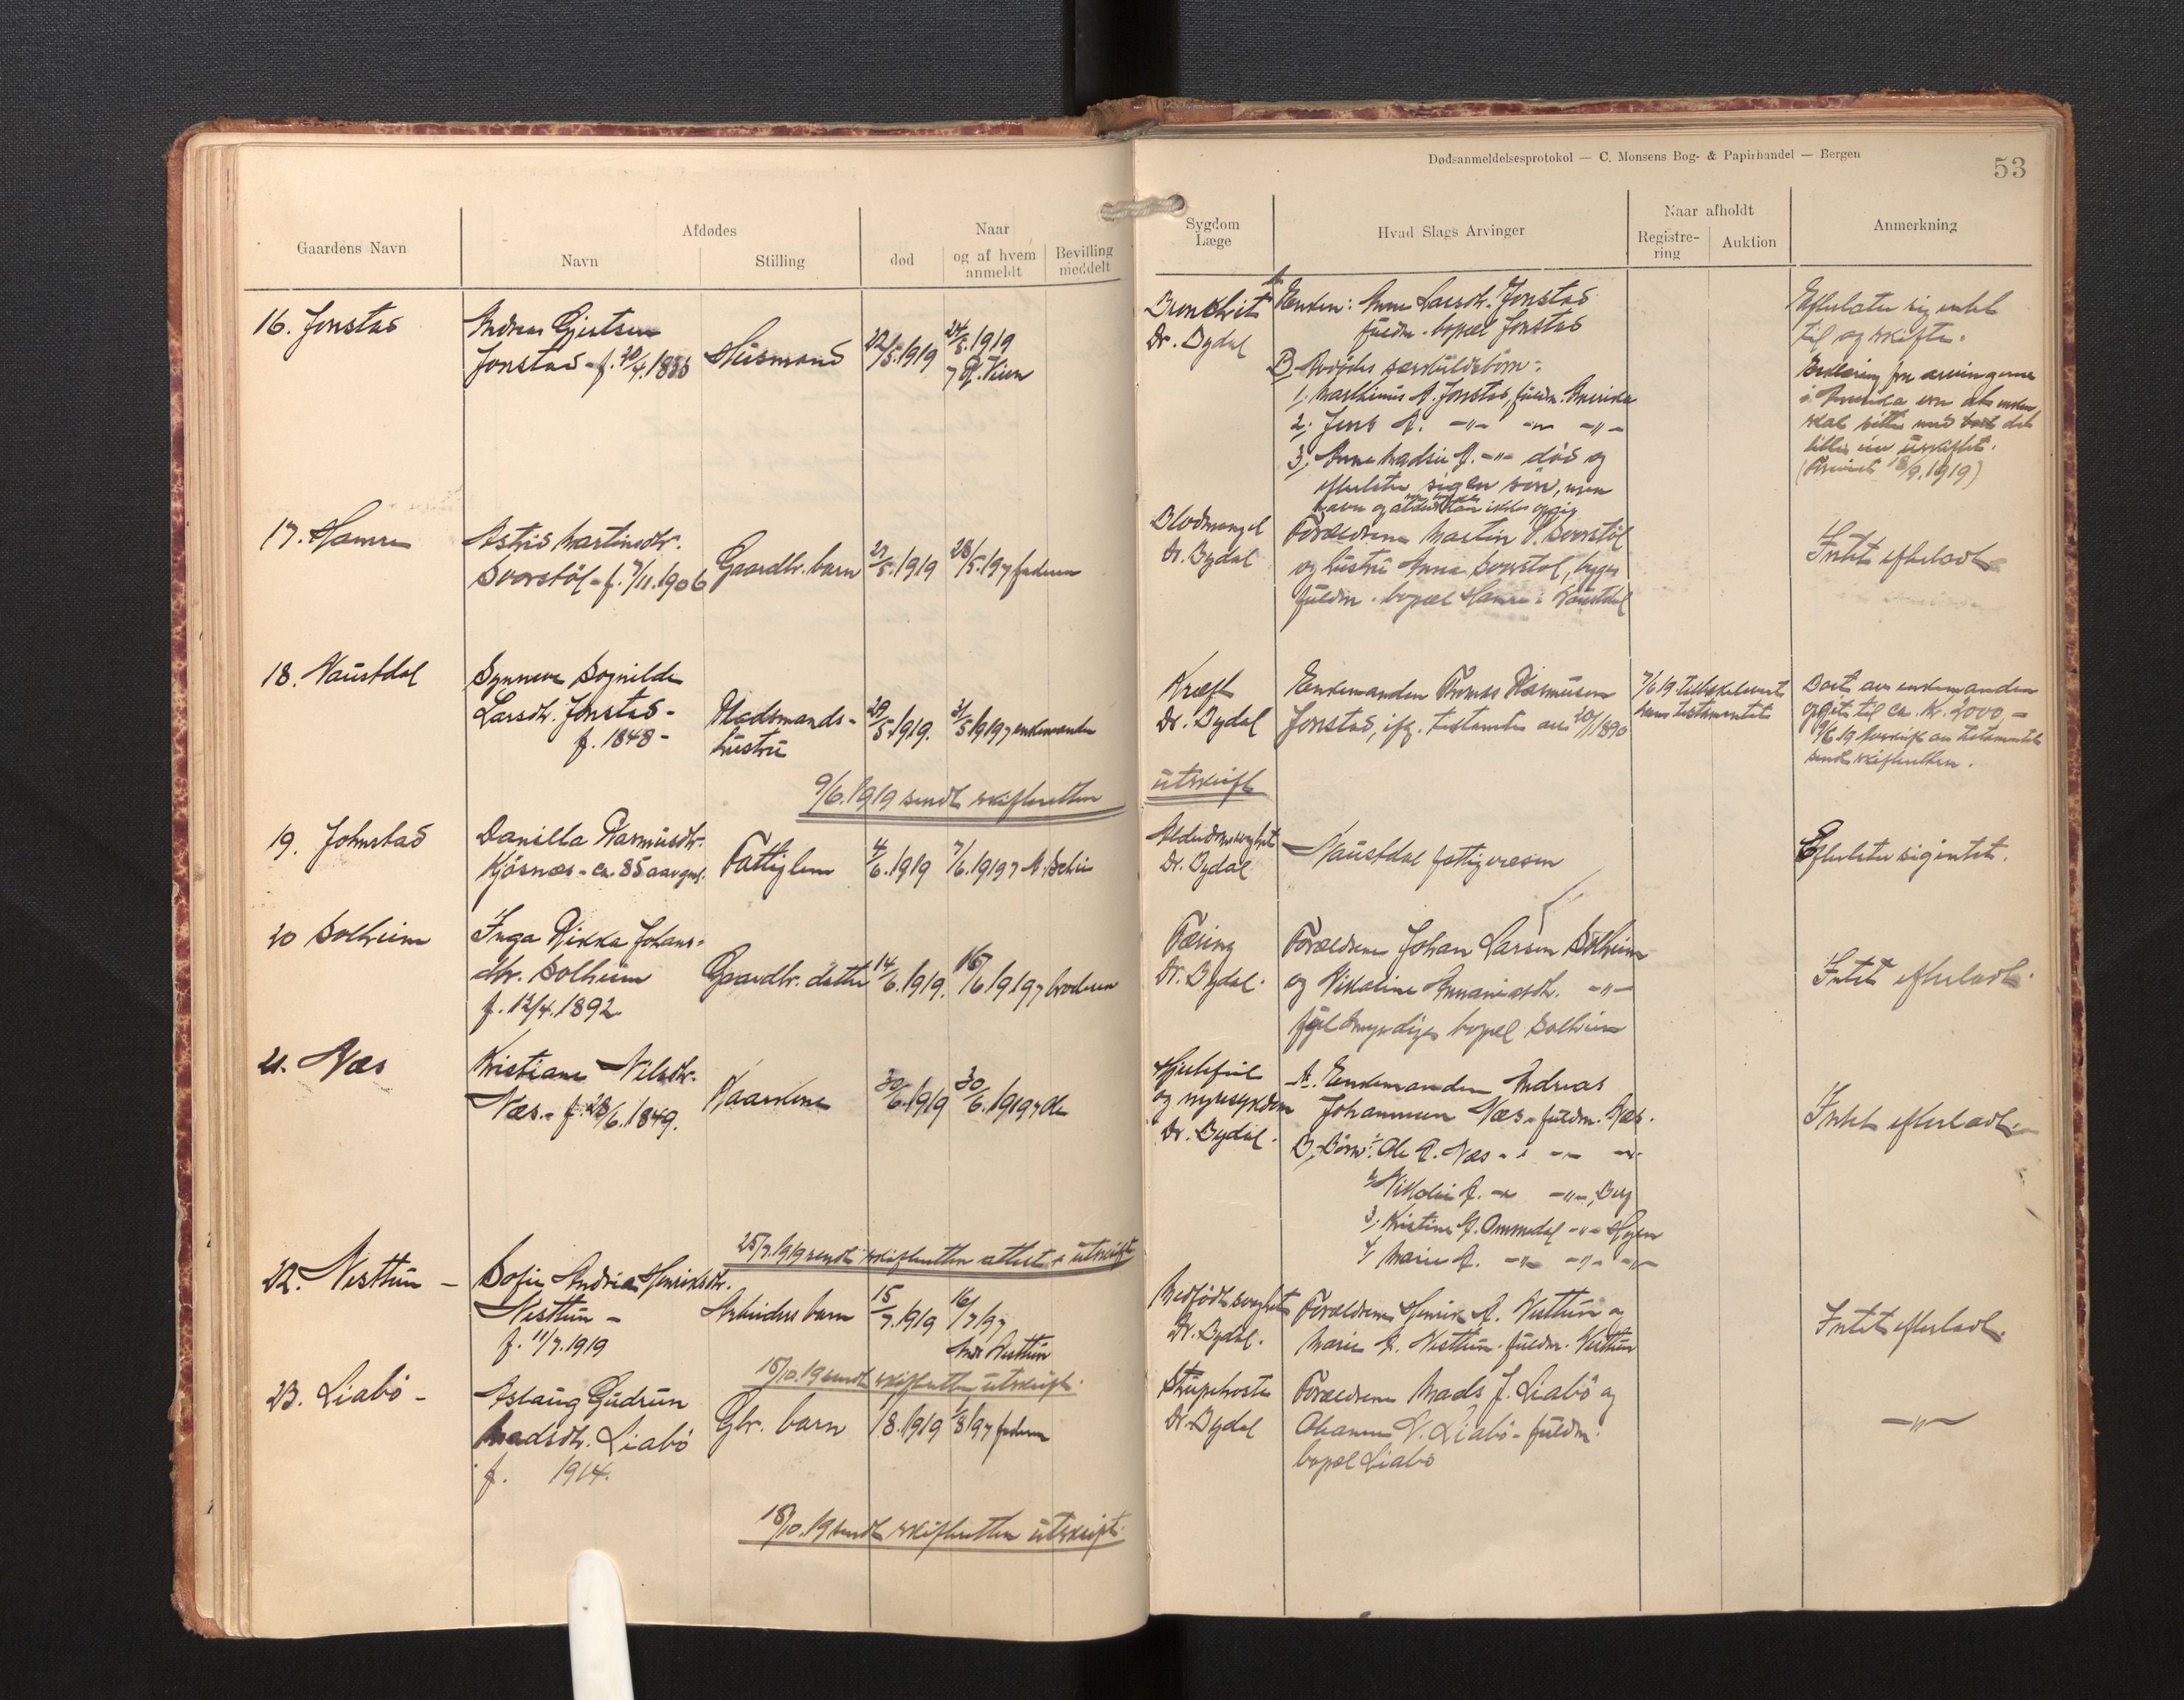 Dødsanmeldelsesprotokol — C. Monsens Bog- & Papirhandel — Bergen
53
Gaardens Navn
Afdødes
Navn
Stilling
Naar
død
og af hvem anmeldt
Bevilling meddelt
Sygdom
Læge
Hvad Slags Arvinger
Naar afholdt
Registrering
Auktion
Anmerkning
16. Jonstad
Andreas Gjertsen
Jonstad - f. 20/4.1835
Husmand
22/5.1919
24/5.1919
Dr. Dydal
A. Enken: Anne Larsdtr. Jonstad
fuldm. bopæl Jonstad
B. Avdødes særkuldsbørn:
1, Marthinus A. Jonstad, fuldm. Amerika
2, Jens A. -"- -"- -"-
3, Anne Madsie A. -"- død og
efterlater sig en søn, men
navn og alder kan ikke opgis
Efterlater sig intet
til og skifte.
Erklæring fra arvingerne
i Amerika om at enken
skal sitte med det
lille i uskiftet.
17. Hamre
Astrid Martinsdtr.
Svorstøl - f. 7/11.1906
Gaardbr. barn
27/5.1919
28/5.19 faderen
Blodmangel
Dr. Dydal
Forældrene Martin Svorstøl
og hustru Anna Svorstøl, begge
fuldm. bopæl Hamre i Naustdal
Intet efterladt
18. Naustdal
Synneve Sognilde
Larsdtr. Jonstad -
f. 1848 -
Pladsmands-
hustru
29/5.1919.
31/5 1919 enkemanden
Kræft
Dr. Dydal
Enkemanden Rasmusen
Jonstad, ifg. testamente av 1890
7/6 19 tilbakelevert
ham testamentet
Boet av enkemanden
opgit til ca. Kr. 2000,-
9/6 19 avskrift av testamentet
sendt skifteretten.
9/6.1919 sendt skifteretten
utskrift
19. Johnstad
Danilla Rasmusdtr.
Kjøsnæs - ca. 85 aar gml.
Fattiglem
4/6.1919
7/6.1919
Alderdomssvaghet
Dr. Dydal
Naustdal fattigvæsen
Efterlater sig intet.
20 Solheim
Inga Rikka Johans-
dtr. Solheim
f. 12/4.1892.
Gaardbr. datter
14/6.1919.
16/6 1919 broderen
Tæring
Dr. Dydal.
Forældrene Johan Larsen Solheim
og Nikoline Annaniasdtr. -"-
fuldmyndige bopæl Solheim
Intet efterladt.
21. Næs
Kristiane Nilsdtr.
Næs. - f. 28/6.1849.
Kaarkone
30/6.1919
30/6.1919 Ole
Hjertefeil
og nyresykdom
Dr. Dydal.
A. Enkemanden Andreas
Johannesen Næs - fuldm. Næs.
B, Børn: 1, Ole A. Næs - " -"- -"-
2, Nikolai A. -"- -"-
3, Kristine A. Ommedal -"-
4, Marie A. -"- -"- -"-
Intet efterladt.
25/7.1919 sendt skifteretten attest & utskrift
22. Vesttun -
Sofie Andrea Henriksdtr.
Vesttun -
f. 11/7.1919
Arbeiders barn
15/7.1919
16/7 19
And. Vesttun
Medfødt svaghet
Dr. Dydal.
Forældrene Henrik A. Vesttun og
Marie A. Vesttun - fuldm. Vesttun
Intet efterladt.
15/10.19 sendt skifteretten utskrift.
23. Liabø -
Aslaug Gudrun
Madsdtr. Liabø
f. 1914.
Gbr. barn
1/8.1919
/8 19 faderen
Strupehoste
Dr. Dydal
Forældrene Mads J. Liabø og
Liabø - fuldm.
bopæl Liabø
-"-
15/10.19 sendt skifteretten utskrift.